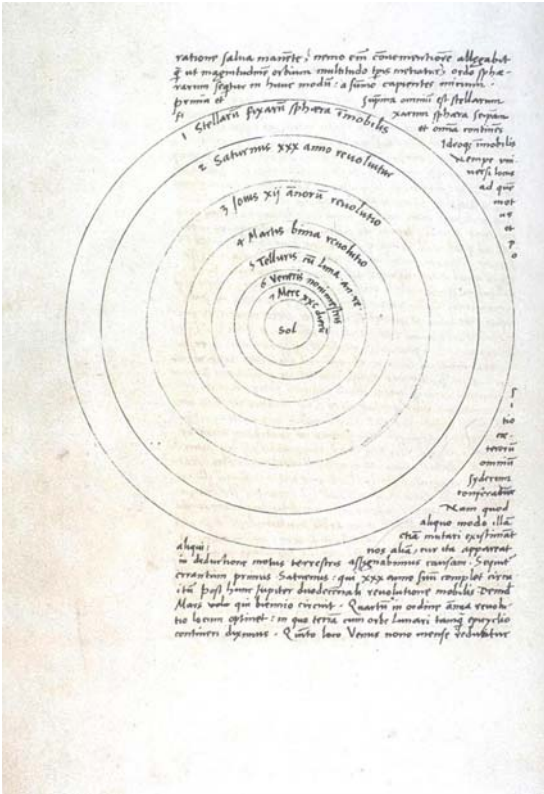 ratione salva manēte, nemo em̄ convenientiorē allegabit
q̄ ut magnitudinē orbium multitudo tp̄is metiatur, ordo sphæ-
rarum seq̄tur in hunc modū: a sūmo capientes initium.
prima et suprema omniū est stellarum
fi xarum sphæra seipsam
et omnia continēs
Ideoq; īmobilis
Nempe uni-
versi locus
ad quē
mot
us
et
po
1 Stellarū fixarū sphæra īmobilis
2 Saturnus xxx anno revolvitur
3 Jovis xij annorū revolutio
4 Martis bima revolutio
5 Telluris cū Luna an. re.
6 Veneris nonimestris
7 Merc xxc dierū
Sol
si
tio
cæ-
terorū
omniū
syderum
conferatur
Nam quod
aliquo modo illā
etiā mutari existimāt
aliqui: nos aliā, cur ita appareat
in deductione motus terrestris assignabimus causam. Sequit̄
errantium primus Saturnus: qui xxx anno suū complet circu
itū. Post hunc Jupiter duodecennali revolutione mobilis. Deinde
Mars qui biennio circuit. Quartū in ordine annua revolu-
tio locum optinet: in quo terrā cum orbe Lunari tanq̄ epicyclio
contineri diximus. Quinto loco Venus nono mense reducitur